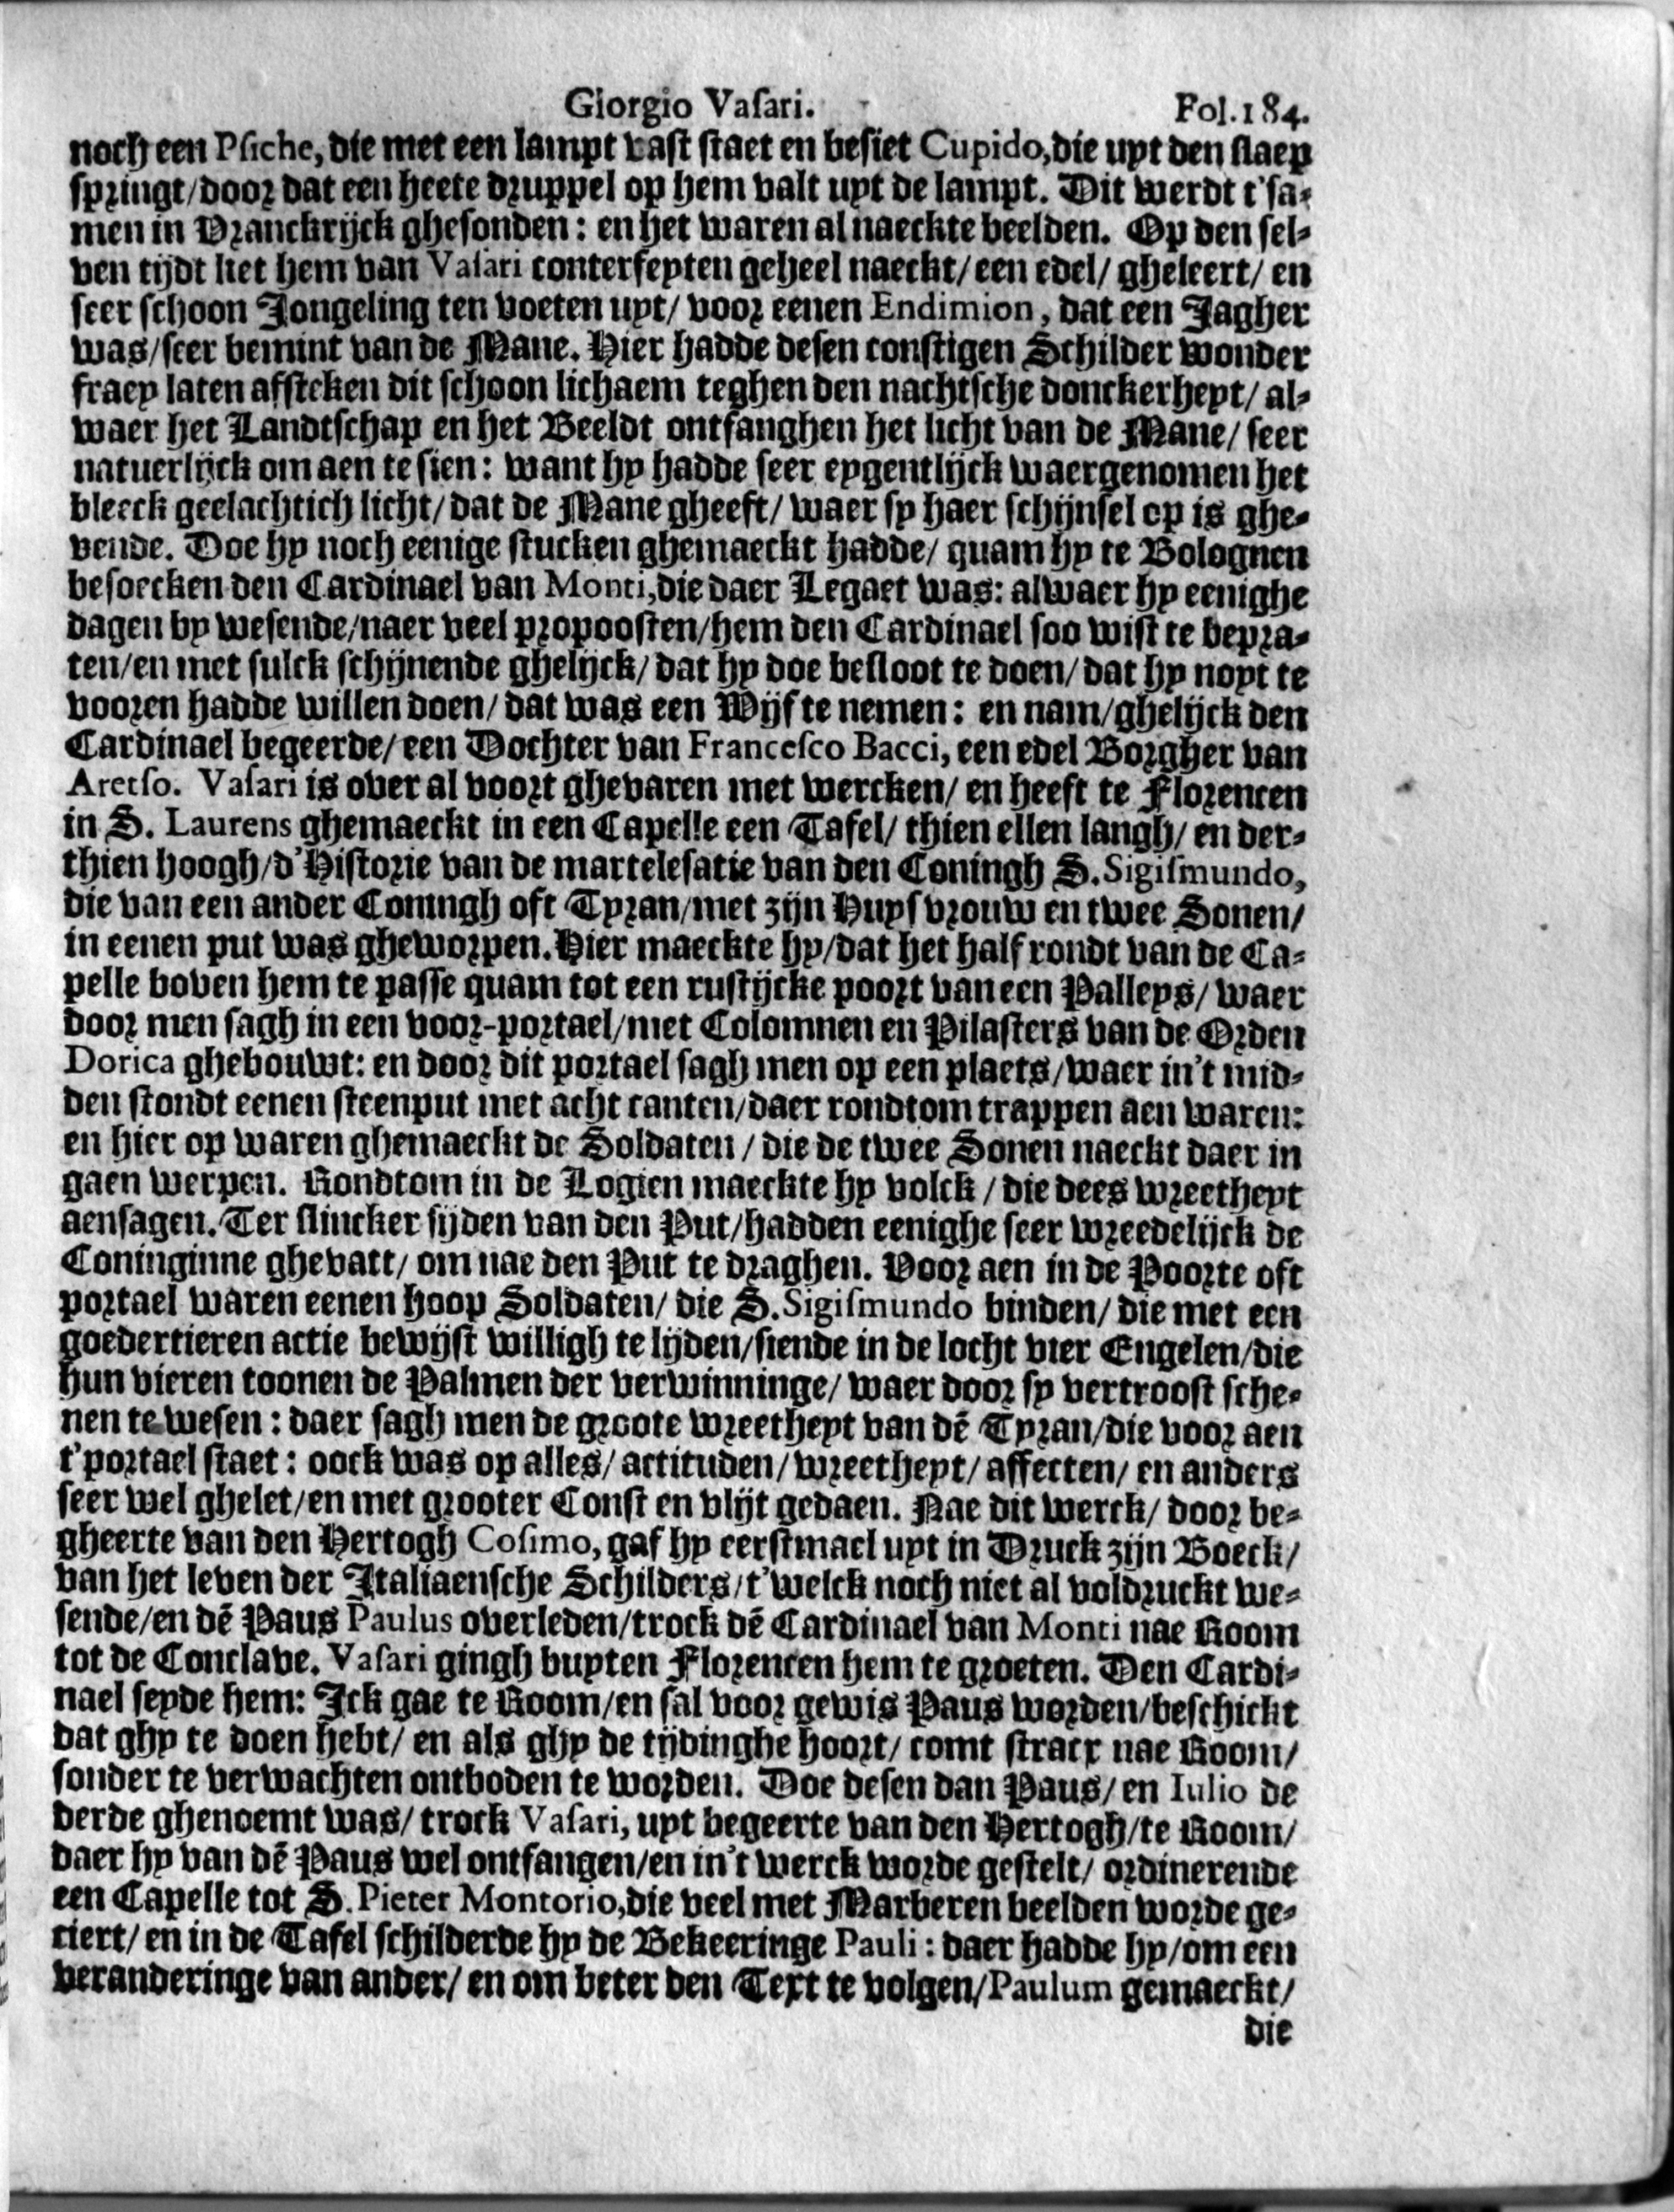 Giorgio Vaſari. Fol. 184.
noch een Pſiche, die met een lampt vast staet en besiet Cupido, die uyt den slaep
springt/ door dat een heete druppel op hem valt uyt de lampt. Dit werdt t'sa-
men in Vranckrijck ghesonden: en het waren al naeckte beelden. Op den sel-
ven tijdt liet hem van Vaſari conterfeyten geheel naeckt/ een edel/ gheleert/ en
seer schoon Jongeling ten voeten uyt/ voor eenen Endimion, dat een Jagher
was/ seer bemint van de Mane. Hier hadde desen constigen Schilder wonder
fraey laten afsteken dit schoon lichaem teghen den nachtsche donckerheyt/ al-
waer het Landtschap en het Beeldt ontfanghen het licht van de Mane/ seer
natuerlijck om aen te sien: want hy hadde seer eygentlijck waergenomen het
bleeck geelachtich licht/ dat de Mane gheeft/ waer sy haer schijnsel op is ghe-
vende. Doe hy noch eenige stucken ghemaeckt hadde/ quam hy te Bolognen
besoecken den Cardinael van Monti, die daer Legaet was: alwaer hy eenighe
dagen by wesende/ naer veel propoosten/ hem den Cardinael soo wist te bepra-
ten/ en met sulck schijnende ghelijck/ dat hy doe besloot te doen/ dat hy noyt te
vooren hadde willen doen/ dat was een Wijf te nemen: en nam/ ghelijck den
Cardinael begeerde/ een Dochter van Franceſco Bacci, een edel Borgher van
Aretſo. Vaſari is over al voort ghevaren met wercken/ en heeft te Florencen
in S. Laurens ghemaeckt in een Capelle een Tafel/ thien ellen langh/ en der-
thien hoogh/ d'Historie van de martelesatie van den Coningh S. Sigiſmundo,
die van een ander Coningh oft Tyran/ met zijn Huysvrouw en twee Sonen/
in eenen put was gheworpen. Hier maeckte hy/ dat het half rondt van de Ca-
pelle boven hem te passe quam tot een rustijcke poort van een Palleys/ waer
door men sagh in een voor-portael/ met Colomnen en Pilasters van de Orden
Dorica ghebouwt: en door dit portael sagh men op een plaets/ waer in't mid-
den stondt eenen steenput met acht canten/ daer rondtom trappen aen waren:
en hier op waren ghemaeckt de Soldaten/ die de twee Sonen naeckt daer in
gaen werpen. Rondtom in de Logien maeckte hy volck/ die dees wreetheyt
aensagen. Ter slincker sijden van den Put/ hadden eenighe seer wreedelijck de
Coninginne ghevatt/ om nae den Put te draghen. Voor aen in de Poorte oft
portael waren eenen hoop Soldaten/ die S. Sigiſmundo binden/ die met een
goedertieren actie bewijst willigh te lijden/ siende in de locht vier Engelen/ die
hun vieren toonen de Palmen der verwinninge/ waer door sy vertroost sche-
nen te wesen: daer sagh men de groote wreetheyt van dẽ Tyran/ die voor aen
t'portael staet: oock was op alles/ actituden/ wreetheyt/ affecten/ en anders
seer wel ghelet/ en met grooter Const en vlijt gedaen. Nae dit werck/ door be-
gheerte van den Hertogh Coſimo, gaf hy eerstmael uyt in Druck zijn Boeck/
van het leven der Italiaensche Schilders/ t'welck noch niet al voldruckt we-
sende/ en dẽ Paus Paulus overleden/ trock dẽ Cardinael van Monti nae Room
tot de Conclave. Vaſari gingh buyten Florencen hem te groeten. Den Cardi-
nael seyde hem: Ick gae te Room/ en sal voor gewis Paus worden/ beschickt
dat ghy te doen hebt/ en als ghy de tijdinghe hoort/ comt stracx nae Room/
sonder te verwachten ontboden te worden. Doe desen dan Paus/ en Iulio de
derde ghenoemt was/ trock Vaſari, uyt begeerte van den Hertogh/ te Room/
daer hy van dẽ Paus wel ontfangen/ en in't werck worde gestelt/ ordinerende
een Capelle tot S. Pieter Montorio, die veel met Marberen beelden worde ge-
ciert/ en in de Tafel schilderde hy de Bekeeringe Pauli: daer hadde hy/ om een
veranderinge van ander/ en om beter den Text te volgen/ Paulum gemaeckt/
die